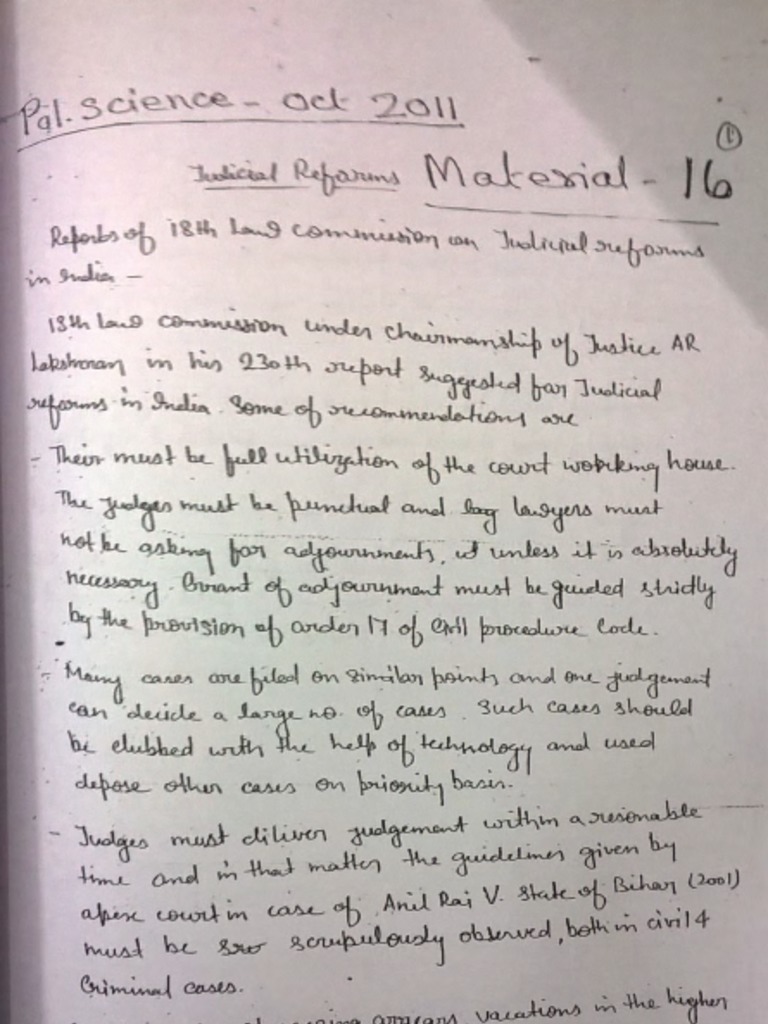 Pol. Science - Oct 2011
①
Judicial Reforms Material - 16
Reports of 18th Law commission on Judicial reforms
in India -
18th Law commission under chairmanship of Justice AR
Lakshmanan in his 230th report suggested for Judicial
reforms in India. Some of recommendations are
- Their must be full utilization of the court working house.
The judges must be punctual and lawyers must
not be asking for adjournments, unless it is absolutely
necessary. Grant of adjournment must be guided strictly
by the provision of order 17 of Civil procedure Code.
- Many cases are filed on similar points and one judgement
can decide a large no. of cases. Such cases should
be clubbed with the help of technology and used
depose other cases on priority basis.
- Judges must diliver judgement within a resonable
time and in that matter, the guidelines given by
apex court in case of Anil Rai V. State of Bihar (2001)
must be scrupulously observed, both in civil &
Criminal cases.
arrears, vacations in the higher